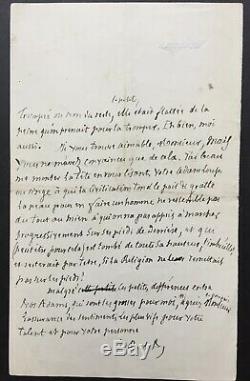 esprit,
trompée ou non du reste, elle était flattée de la
peine qu'on prenait pour la tromper. Eh bien, moi
aussi.
Si vous trouve aimable, Monsieur, Mais
vous ne m'avez convaincu que de cela. J'ai beau
me monter la tête en vous lisant, votre
singe à qui la civilisation tond le poil & gratte
la peau pour en faire un homme ne ressemble pas
du tout au mien à qui on n'a pas appris à marcher
progressivement sur ses pieds de derrière, et qui
tombé de toute sa hauteur, l'imbécille,
et resterait par terre, si la Religion ne le remettait
pas sur les pieds!
malgré les petites différences entre
nos Adams, qui sont les grosses pour moi, agréez Monsieur
l'assurance des sentiments les plus vifs pour votre
talent et pour votre personne